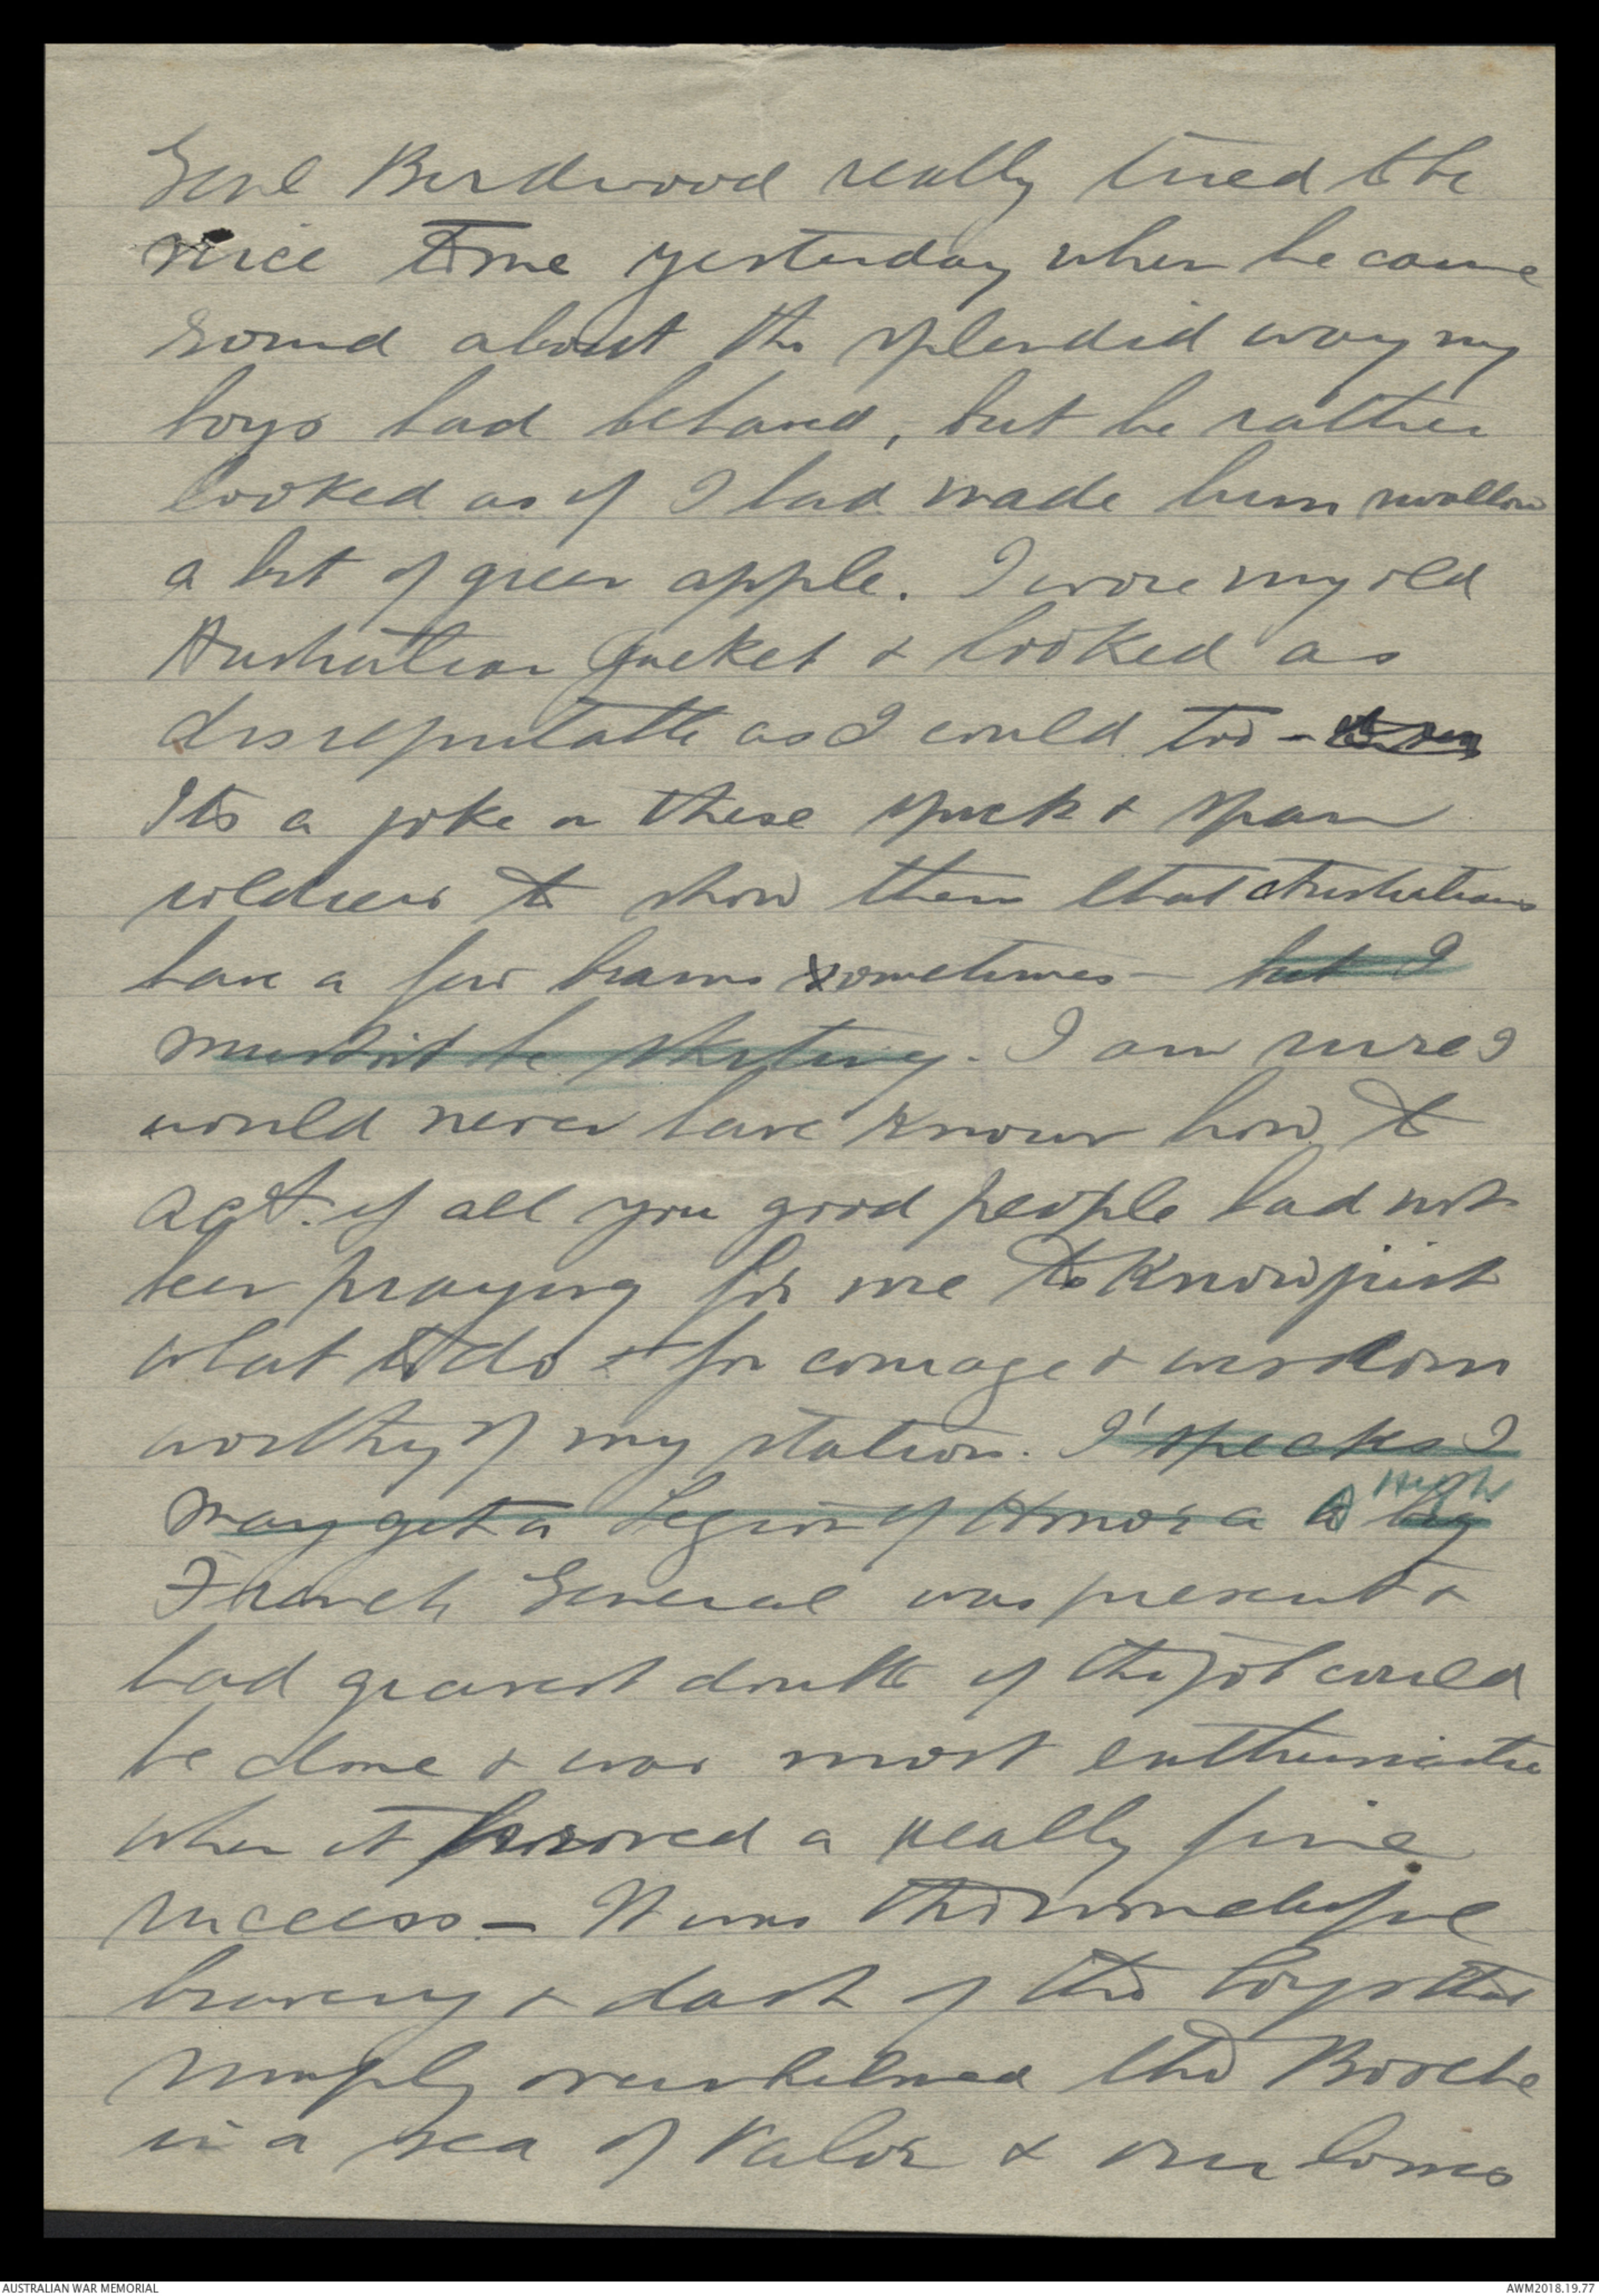 Genl Birdwood really tried to be
nice to me yesterday when he came
round about the splendid way my
boys had behaved, but he rather
looked as if I had made him swallow
a bit of green apple. I wore my old
Australian Jacket & looked as
disreputable as I could too -
Its a joke on these spick & span
soldiers to show them that Australians
have a few brains sometimes - but I
mustn't be skiting. I am sure I
would never have known how to
act if all you good people had not
been praying for me to know just
what to do & for courage & wisdom
worthy of my station. I 'specks I
may get a Legion of Honor a A big High
French General was present &
had gravest doubts if the job could
be done & was most enthusiastic
when it proved a really fine
success - It was the
bravery & dash of the boys that
simply overwhelmed the Bosche
in a sea of valor & our losses